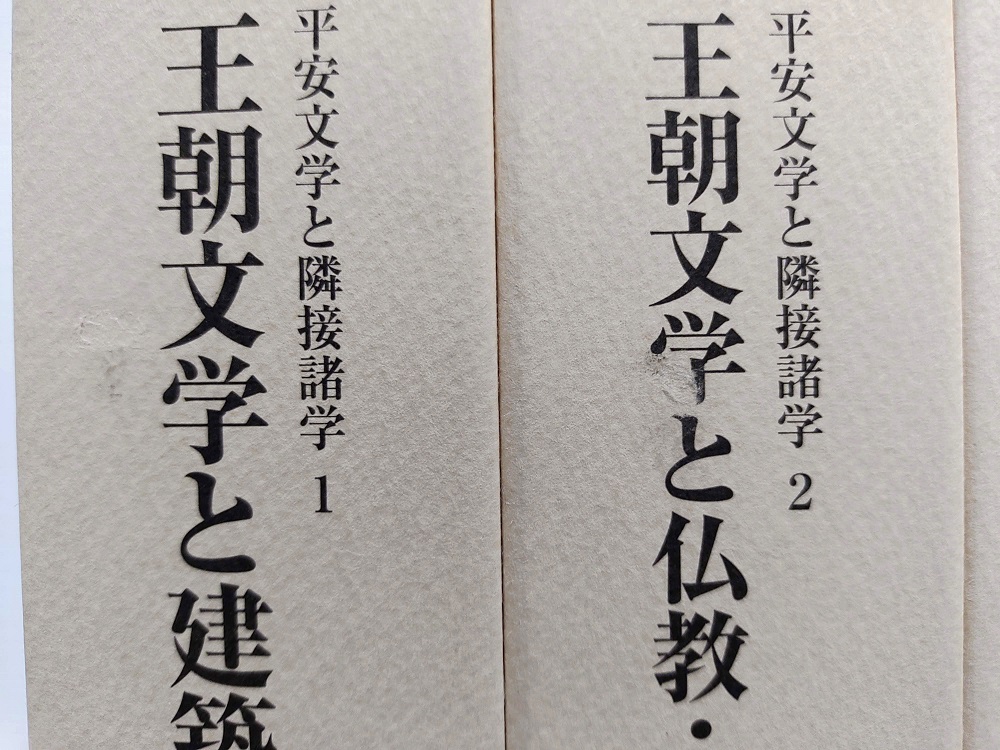 平安文学と隣接諸学 2
王朝文学と仏教・
平安文学と隣接諸学 1
王朝文学と建築